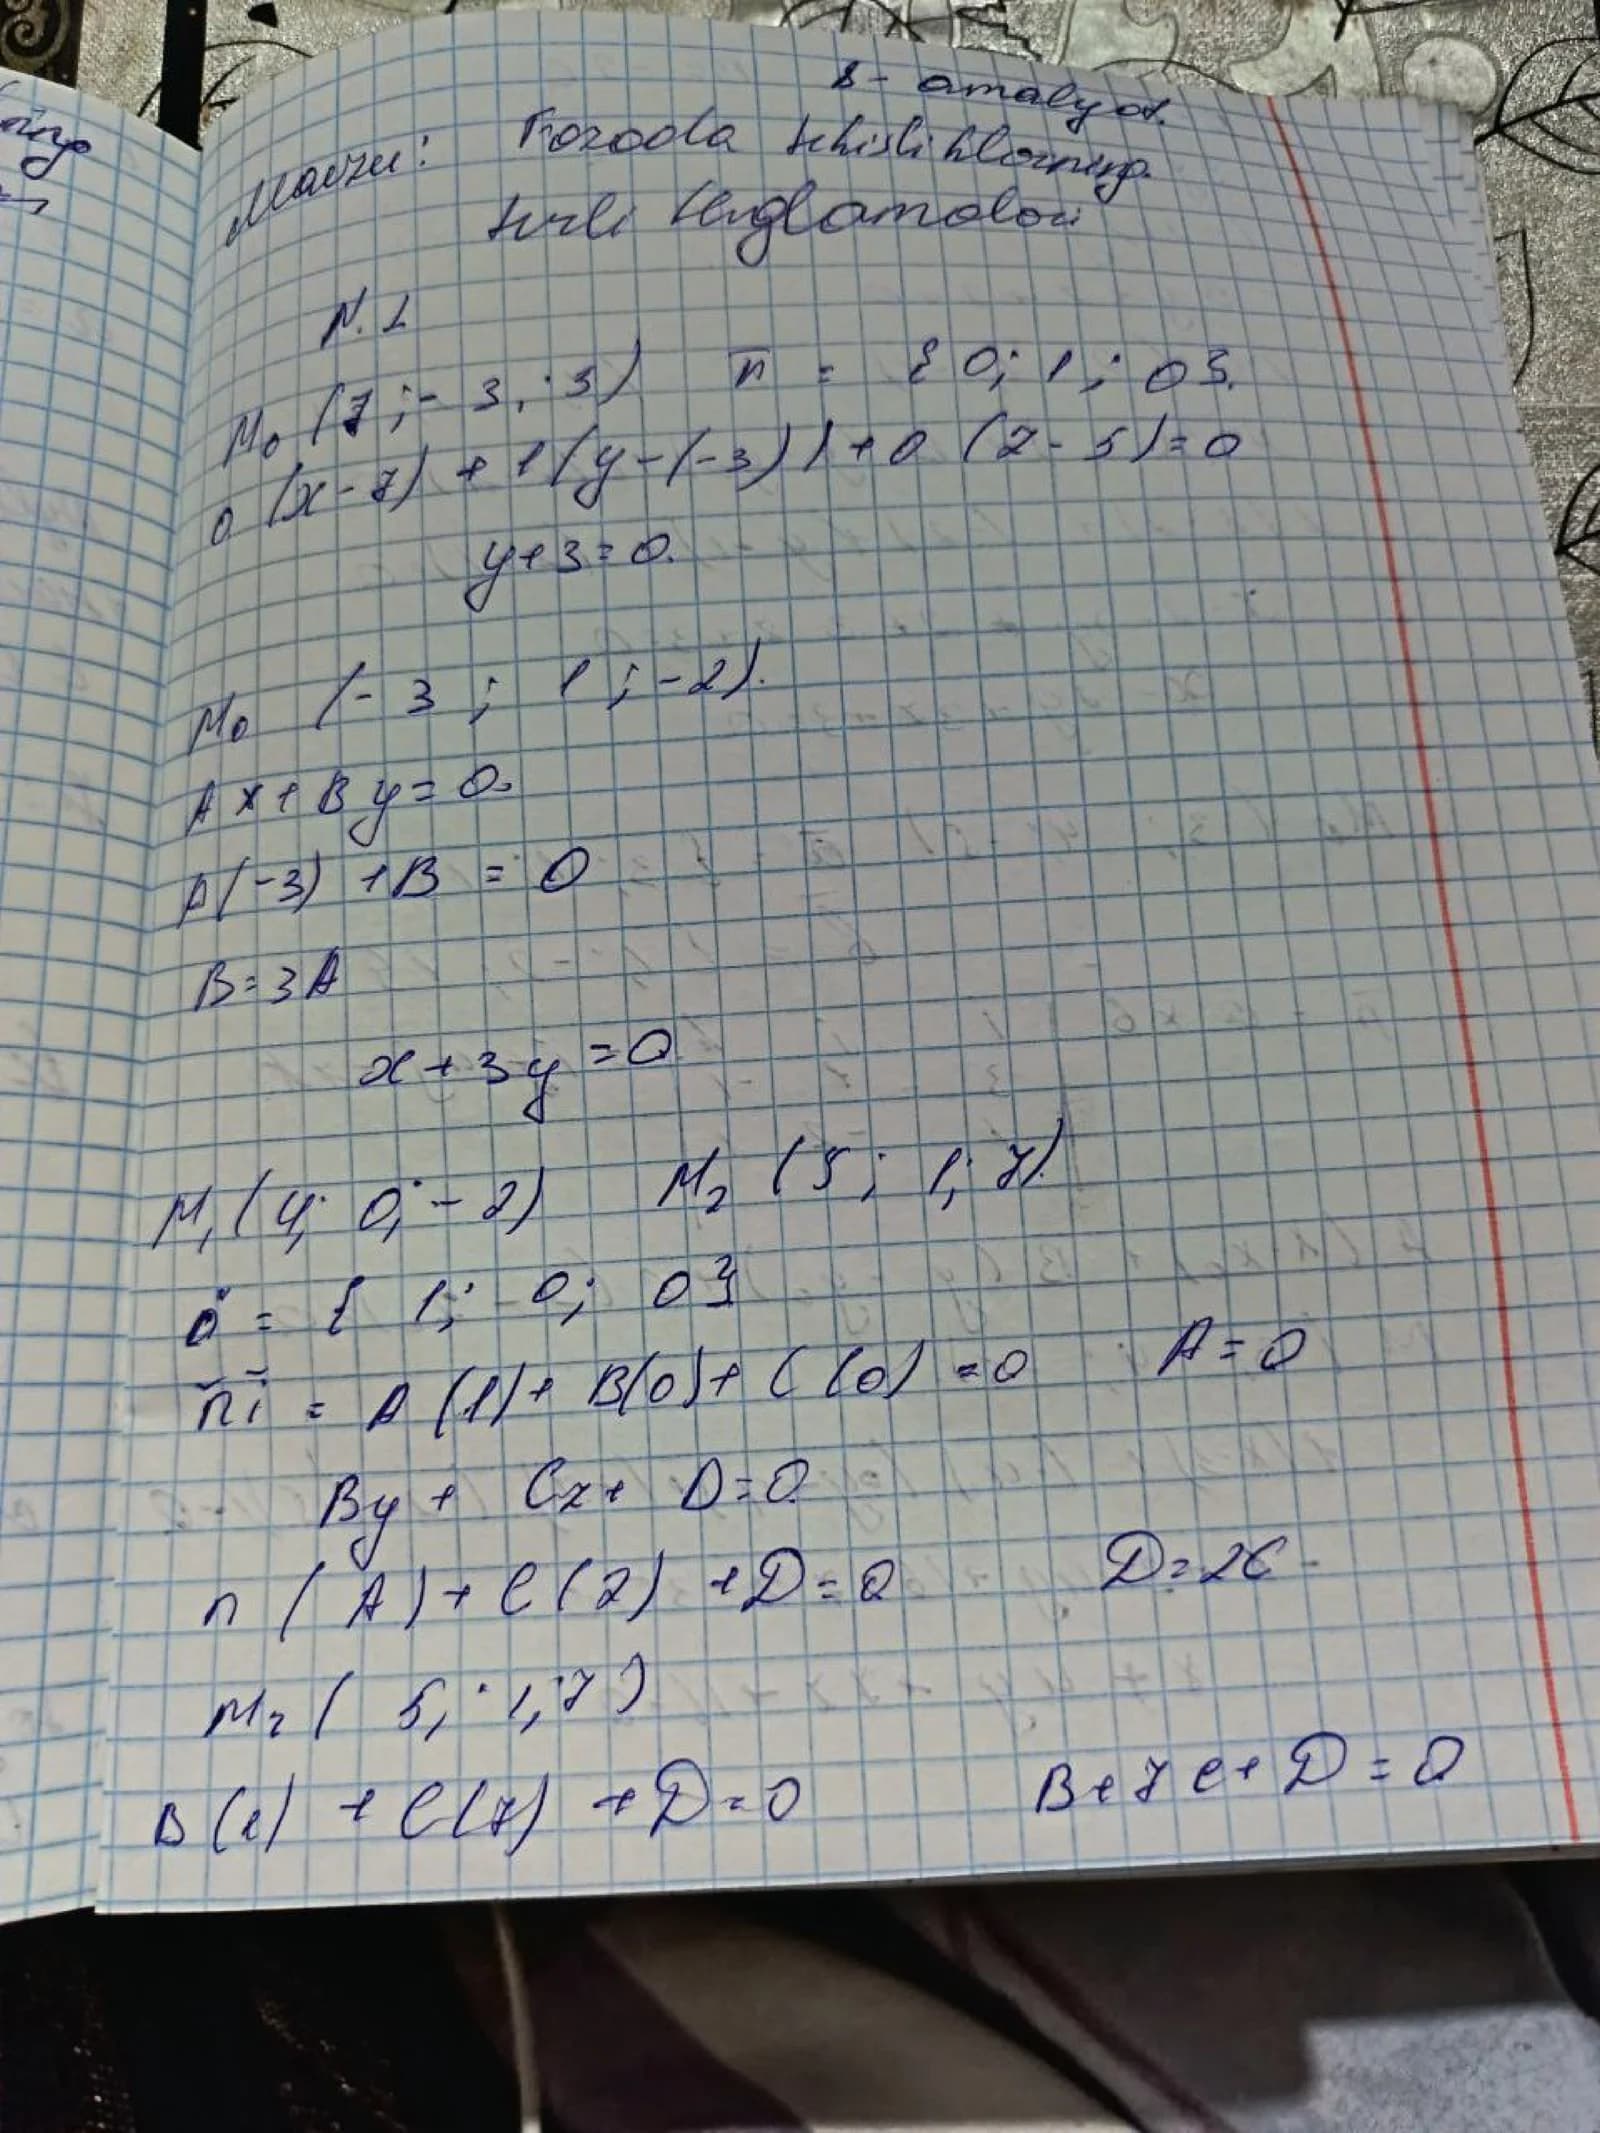 8 - amalyot.
Mavzu: Fazoda tekisliklarning
turli tenglamalari
N. 1
M₀ (7 ; - 3 ; 3) n̄ = { 0 ; 1 ; 0 }.
0 (x - 7) + 1 (y - (-3)) + 0 (z - 5) = 0
y + 3 = 0.
M₀ (- 3 ; 1 ; - 2).
Ax + By = 0.
A(-3) + B = 0
B = 3A
x + 3y = 0
M₁ (4; 0; - 2) M₂ (5 ; 1; 7).
= { 1; 0; 0 }
n̄ ī = A (1) + B(0) + C (0) = 0 A = 0
By + Cz + D = 0
n ( A ) + C (2) + D = 0 D = 2C
M₂ ( 5; 1; 7 )
B (1) + C (7) + D = 0 B + 7C + D = 0